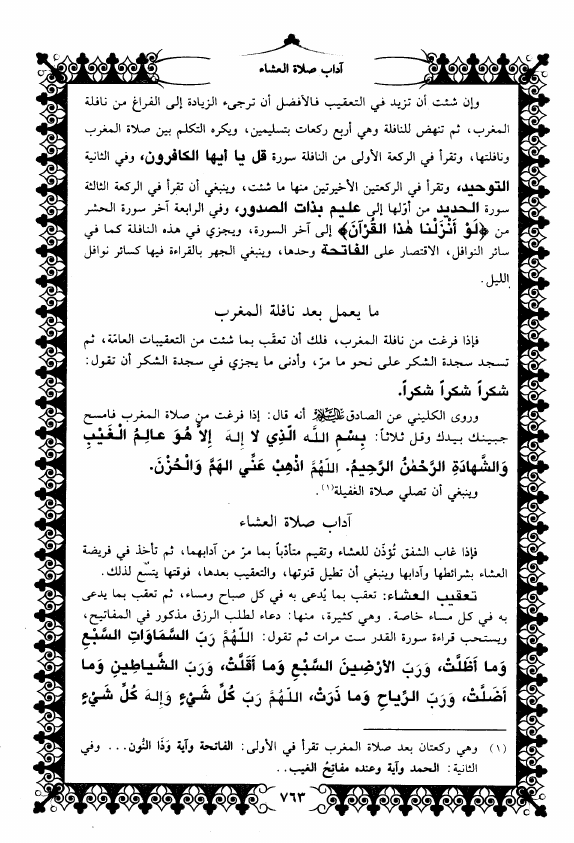 آداب صلاة العشاء
وإن شئت أن تزيد في التعقيب فالأفضل أن ترجىء الزيادة إلى الفراغ من نافلة
المغرب، ثم تنهض للنافلة وهي أربع ركعات بتسليمين، ويكره التكلم بين صلاة المغرب
ونافلتها، وتقرأ في الركعة الأولى من النافلة سورة قل يا أيها الكافرون، وفي الثانية
التوحيد، وتقرأ في الركعتين الأخيرتين منها ما شئت، وينبغي أن تقرأ في الركعة الثالثة
سورة الحديد من أوّلها إلى عليم بذات الصدور، وفي الرابعة آخر سورة الحشر
من ﴿لَوْ أَنْزَلْنا هٰذا القُرْآنَ﴾ إلى آخر السورة، ويجزي في هذه النافلة كما في
سائر النوافل، الاقتصار على الفاتحة وحدها، وينبغي الجهر بالقراءة فيها كسائر نوافل
الليل.
ما يعمل بعد نافلة المغرب
فإذا فرغت من نافلة المغرب، فلك أن تعقّب بما شئت من التعقيبات العامّة، ثم
تسجد سجدة الشكر على نحو ما مرّ، وأدنى ما يجزي في سجدة الشكر أن تقول:
شكراً شكراً شكراً.
وروى الكليني عن الصادق عليه السلام أنه قال: إذا فرغت من صلاة المغرب فامسح
جبينك بيدك وقل ثلاثاً: بِسْمِ اللَّه الَّذِي لا إلهَ إلاَّ هُوَ عالِمُ الْغَيْبِ
وَالشَّهادَةِ الرَّحْمٰنُ الرَّحِيمُ. اللهُمَّ اذْهِبْ عَنِّي الهَمَّ وَالْحُزْنَ.
وينبغي أن تصلي صلاة الغفيلة(١).
آداب صلاة العشاء
فإذا غاب الشفق تُؤذّن للعشاء وتقيم متأدّباً بما مرّ من آدابهما، ثم تأخذ في فريضة
العشاء بشرائطها وآدابها وينبغي أن تطيل قنوتها، والتعقيب بعدها، فوقتها يتسّع لذلك.
تعقيب العشاء: تعقب بما يُدعى به في كل صباح ومساء، ثم تعقب بما يدعى
به في كل مساء خاصة. وهي كثيرة، منها: دعاء لطلب الرزق مذكور في المفاتيح،
ويستحب قراءة سورة القدر ست مرات ثم تقول: اللَّهُمَّ رَبَّ السَّمَاوَاتِ السَّبْعِ
وَما أظَلَّتْ، وَرَبَّ الأرْضِينَ السَّبْعِ وَما أقَلَّتْ، وَرَبَّ الشَّياطِينِ وَما
أضَلَّتْ، وَرَبَّ الرِّياحِ وَما ذَرَتْ، اللهُمَّ رَبَّ كُلِّ شَيْءٍ وَإلهَ كُلِّ شَيْءٍ
(١) وهي ركعتان بعد صلاة المغرب تقرأ في الأولى: الفاتحة وآية وَذَا النُّون... وفي
الثانية: الحمد وآية وعنده مفاتِحُ الغيب..
٧٦٣